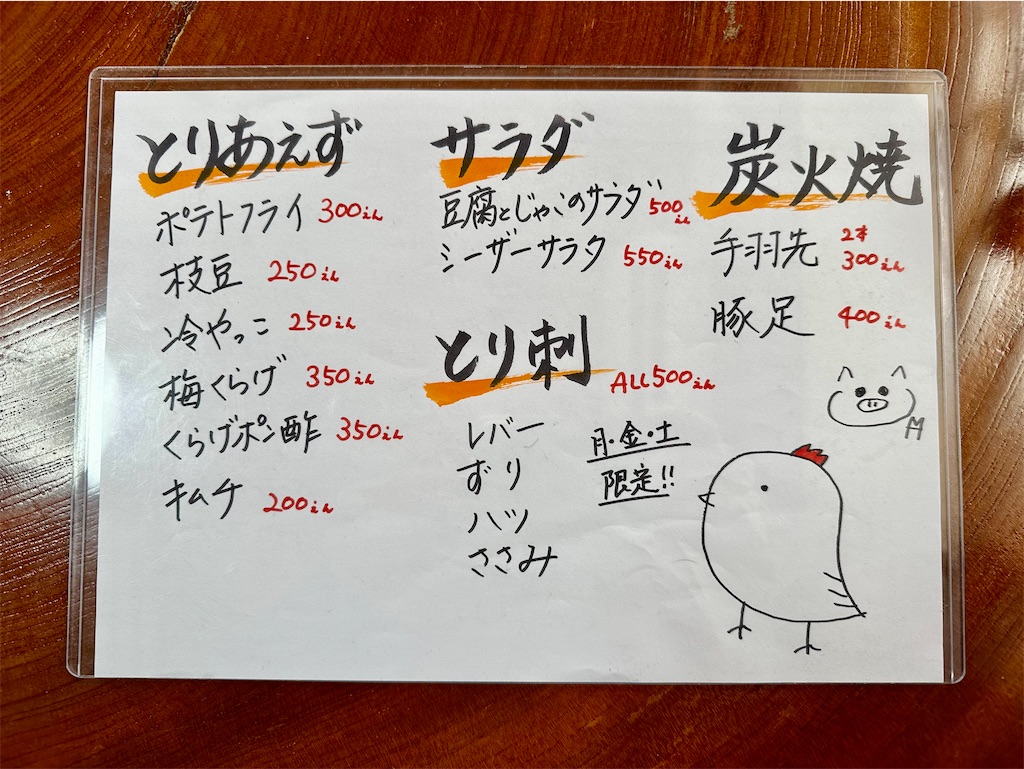 とりあえず
ポテトフライ 300えん
枝豆 250えん
冷やっこ 250えん
梅くらげ 350えん
くらげポン酢 350えん
キムチ 200えん
サラダ
豆腐とじゃこのサラダ 500えん
シーザーサラダ 550えん
とり刺 ALL500えん
レバー
ずり
ハツ
ささみ
月・金・土
限定!!
炭火焼
手羽先 2本 300えん
豚足 400えん